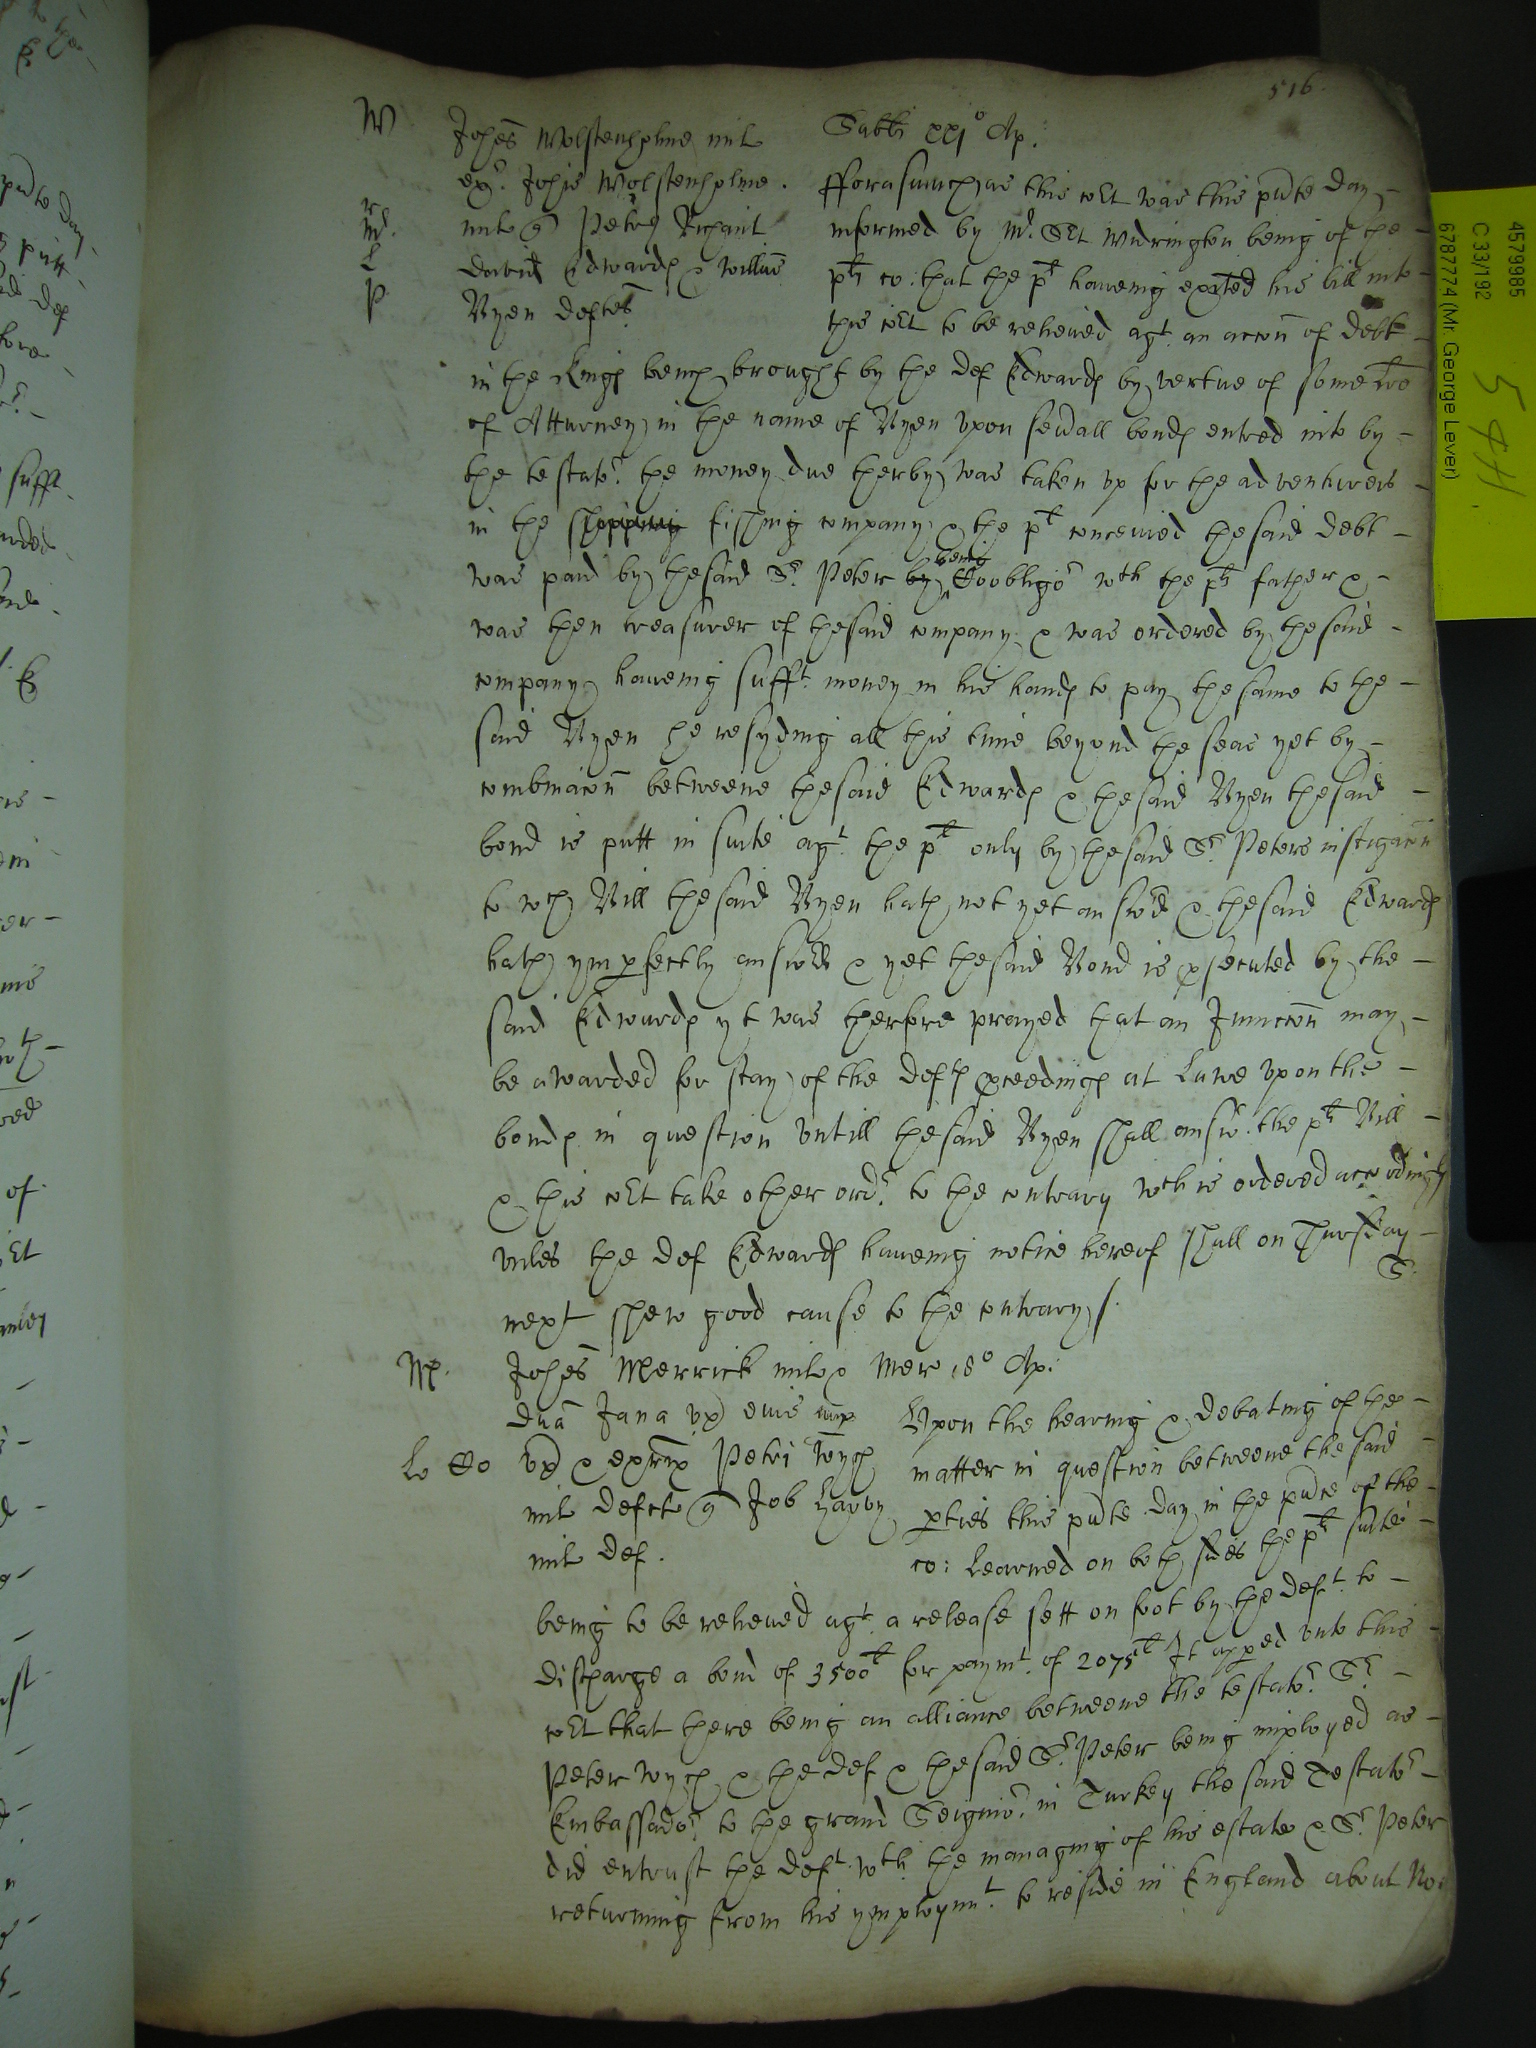 516
W Johes Wolstenholme mil
Sabbi xxjo Ap:
exr. Johis Wolstenholme.
fforasmuch as this cort was this pnte day
r
Mr. milo q Petrū Richaut
informed by Mr. Srt Widrington being of the
L David Edwards & Willm
pts co: that the pt haueing exhted his bill into
P Ryen deftes
this cort to be releiued agt. an accon of debt
in the Kings bench brought by the def Edwards by vertue of some lre
of Atturney in the name of Ryen vpon seuall bonds entred into by
the testator. the money due therby was taken vp for the adventurers
in the shipping fishing company & the pt conceiued the said debt
being
was paid by the said Sr. Peter by Coobligor wth the pts father &
was then treasurer of the said company & was ordered by the said
company haueing sufft. money in his hands to pay the same to the
said Ryen he resyding all this time beyond the seas yet by
combinacon betweene the said Edwards & the said Ryen the said
bond is putt in suite agt. the pt only by the said Sr. Peters instigacon
to wch Bill the said Ryen hath not yet answd & the said Edwards
hath ymperfectly answed & yet the said Bond is psecuted by the
said Edwards yt was therfore prayed that an Iniuncon may
be awarded for stay of the defts pceedings at Lawe vpon the
bonds in question vntill the said Ryen shall answ. the pts Bill
& this cort take other ordr. to the contrary wch is ordered accordingly
vnles the def Edwards haueing notice hereof shall on Thursday
S.
next shew good cause to the contrary /.
M. Johes Merrick mil & Mer 18o Ap:
dna Jana vx eius nup
Upon the hearing & debating of the
Lo Co vx & exrix Petri Wych
matter in question betweene the said
mil defct q Job Harby
pties this pnte day in the pnce of the
mil def.
co: Learned on both sides the pts suite
being to be releiued agt. a release sett on foot by the deft. to
discharge a bond of 3500l for paymt. of 2075l It apped vnto this
cort that there being an alliance betweene the testator. Sr.
Peter Wych & the def & the said Sr. Peter being imployed as
Embassador. to the grand Seignior. in Turkey the said Testator
did entrust the deft. wth the managing of his estate & Sr. Peter
returning from his ymploymt. to reside in England about No
4579985
C 33/192
6787774 (Mr. George Lever)